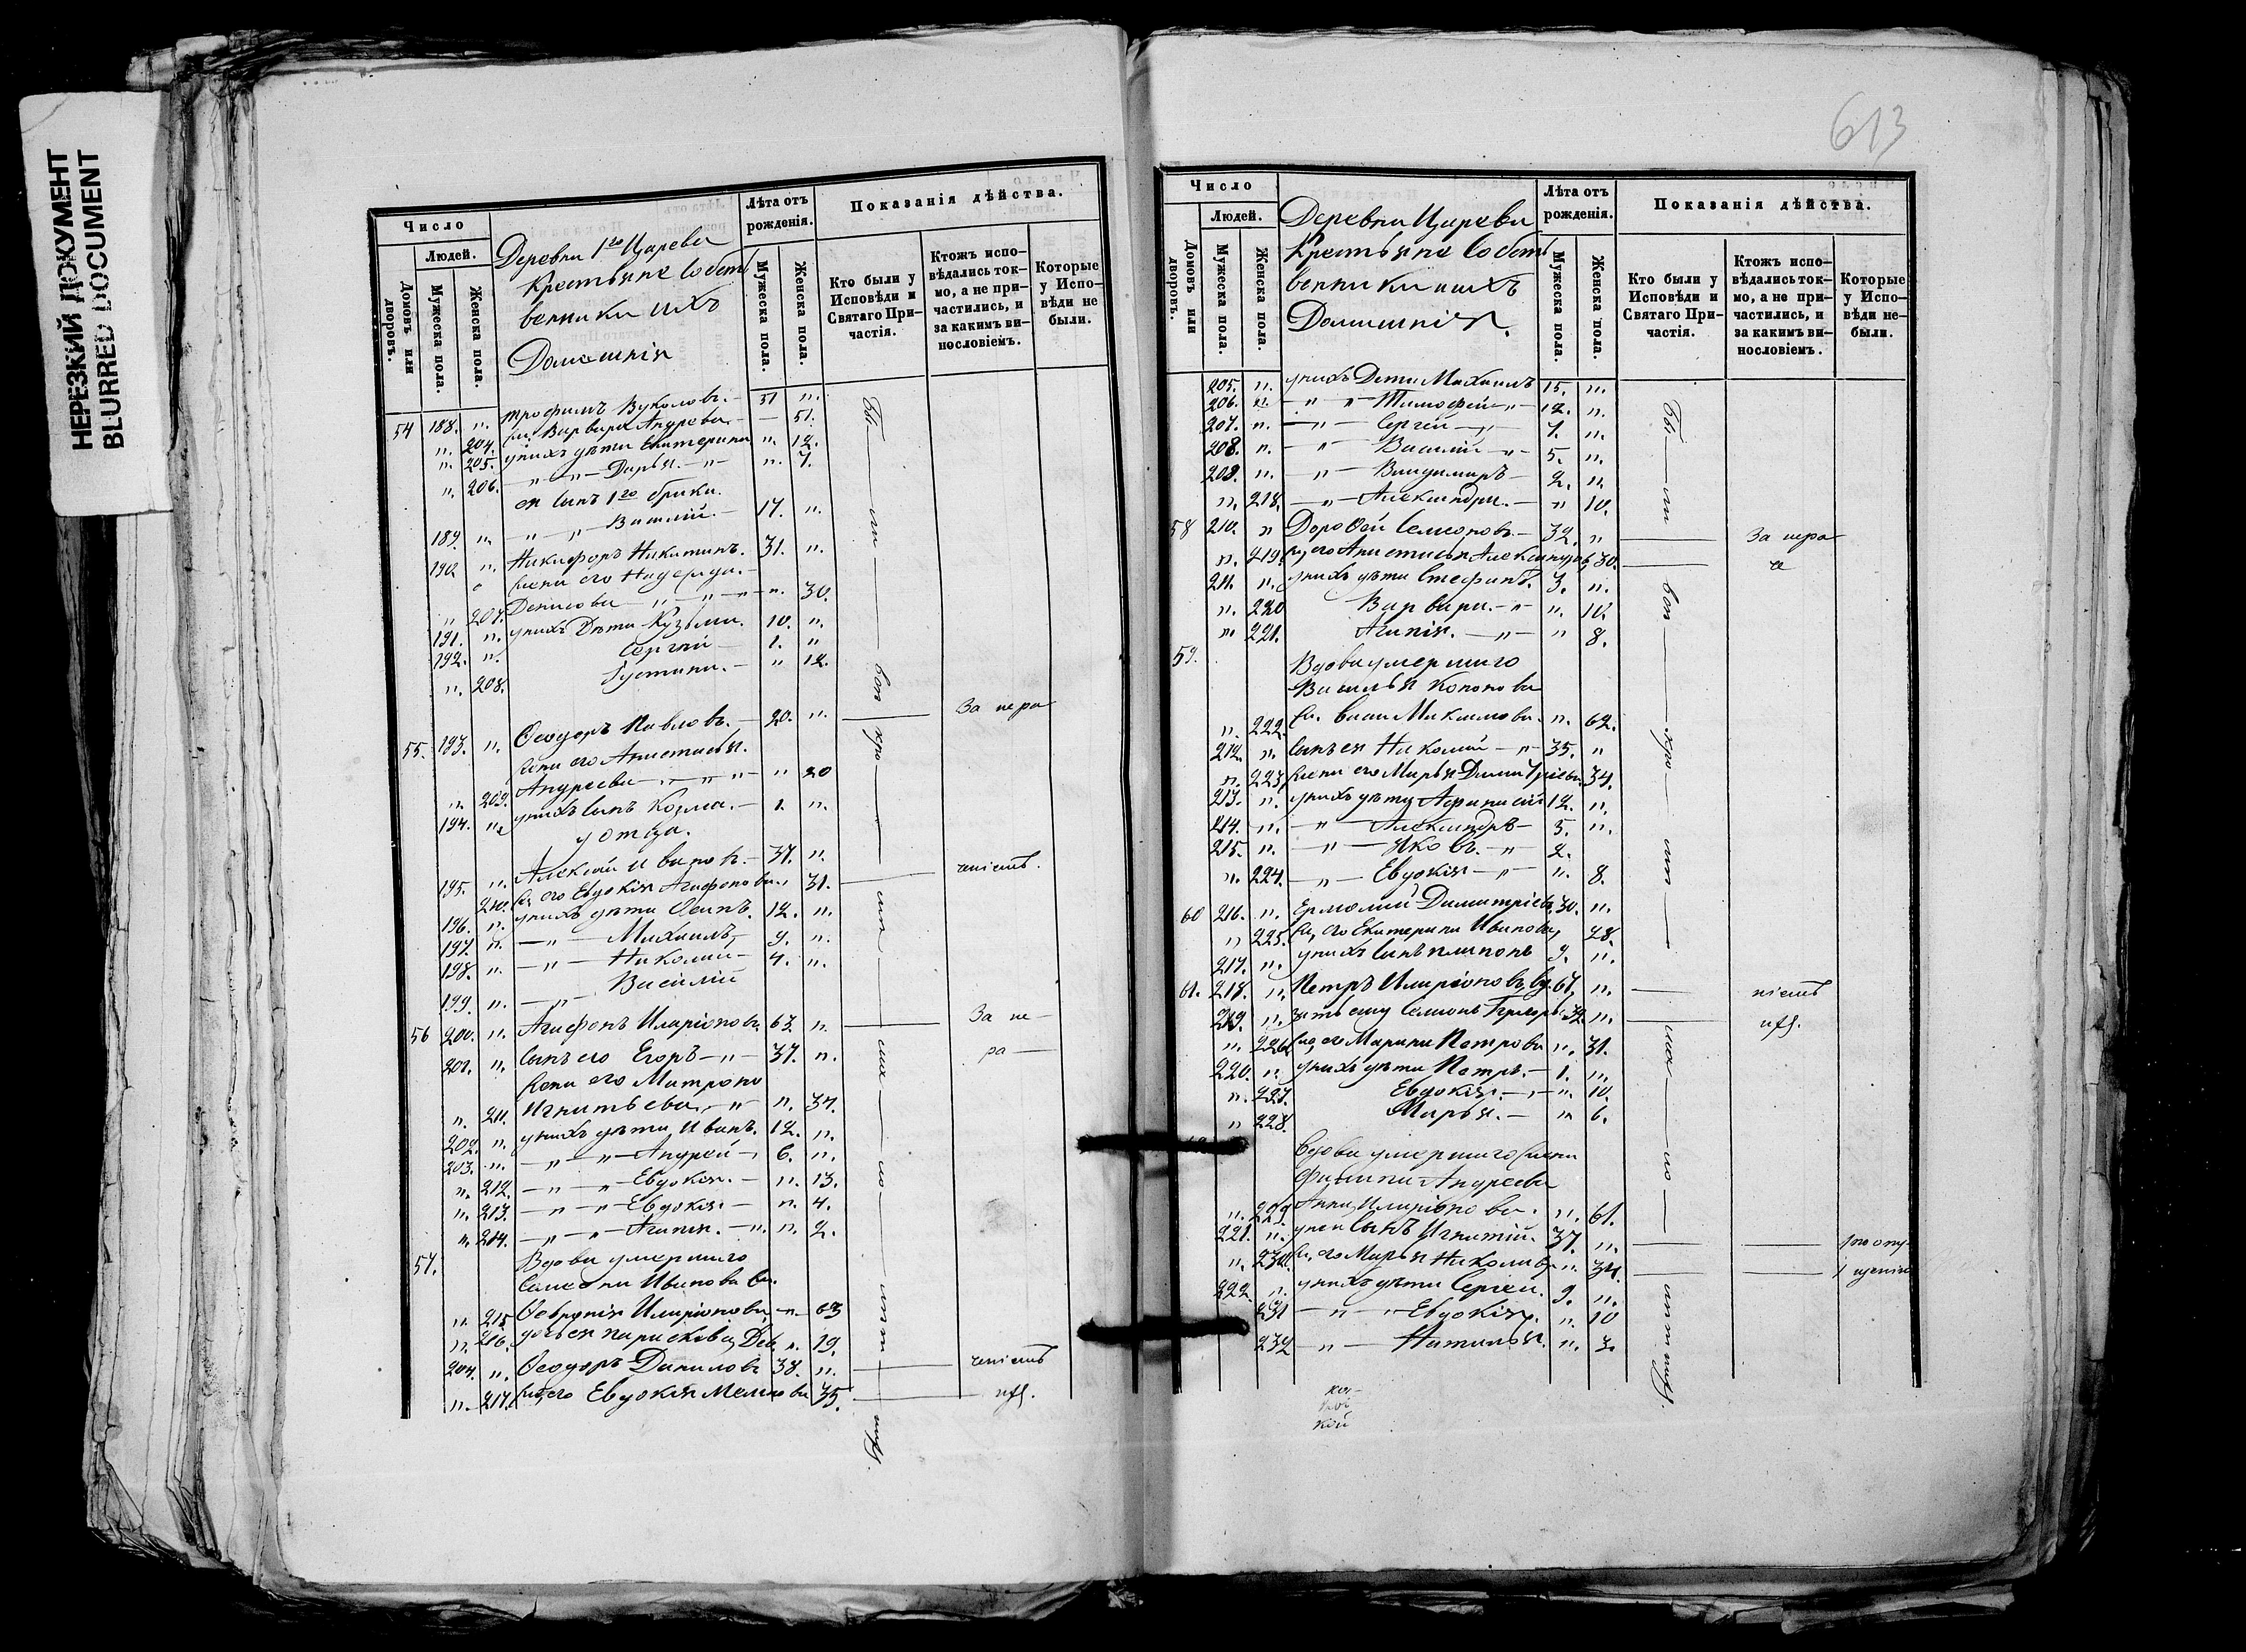 НЕРЕЗКИЙ ДОКУМЕНТ
BLURRED DOCUMENT
Число
Людей.
Домовъ или дворовъ.
Мужеска пола.
Женска пола.
Деревни 1го Царева
Крестьяне Собст
венники ихъ
Домашнія
Лѣта отъ рожденія.
Мужеска пола.
Женска пола.
Показанія дѣйства.
Кто были у Исповѣди и Святаго При-частія.
Ктожъ испо-вѣдались ток-мо, а не при-частились, и за какимъ ви-нословіемъ.
Которые у Испо-вѣди не были.
54 188. „ Трофимъ Вуколовъ. 51 „
„ 204. Варвара Андреева 51.
„ 205. у нихъ дѣти Екатерина „ 12.
„ 206. Дарья „ 7.
ея сынъ 1го брака
189. „ Василій. 17. „
190 „ Никифоръ Никитинъ. 31. „
жена его Надежда
„ 207. Денисова „ 30.
191. „ у нихъ Дѣти Кузьма. 10. „
192. „ Сергѣй 1. „
„ 208. Устинья „ 12.
55. 193. „ Ѳеодоръ Павловъ. 20. „ За нера
жена его Анастасья
„ 209. Андреева „ 20
194. „ у нихъ сынъ Козма. 1. „
у отца.
195. „ Алексѣй Ивановъ. 37. „ ченіемъ.
210. его Евдокія Агафонова „ 31.
196. „ у нихъ дѣти Осипъ. 12. „
197. „ Михаилъ 9. „
198. „ Николай 4. „
199. „ Василій
56 200. „ Агафонъ Иларіоновъ 63. „ За не
201. „ сынъ его Егоръ 37. „ ра
жена его Матрона
„ 211. Игнатьева „ 37.
202. „ у нихъ дѣти Иванъ. 12. „
203. „ Андрей 6. „
„ 212. Евдокія. „ 13.
„ 213. Евдокія „ 4.
„ 214. Агапія. „ 2.
57. Вдова умершаго
Симеона Иванова
„ 215 Ѳевронія Иларіонова „ 63
„ 216. дочь ея Параскева Дѣв. „ 19.
204. „ Ѳеодоръ Даниловъ 38. „ ченіемъ
„ 217. его Евдокія 35.
Бы ли во ис по
613
Число
Людей.
Домовъ или дворовъ.
Мужеска пола.
Женска пола.
Деревни Царева
Крестьяне Собств
венники ихъ
Домашнія.
Лѣта отъ рожденія.
Мужеска пола.
Женска пола.
Показанія дѣйства.
Кто были у Исповѣди и Святаго При-частія.
Ктожъ испо-вѣдались ток-мо, а не при-частились, и за какимъ ви-нословіемъ.
Которые у Испо-вѣди не-были.
205. „ у нихъ Дѣти Михаилъ 15. „
206. „ Тимофей 12. „
207. „ Сергѣй 7. „
208. „ Василій 5. „
209. „ Владимиръ 2. „
„ 218. Александра. „ 10.
58 210. „ Дороѳей Семеновъ. 32. „ За нера
„ 219. его Анастасья Александров. 30. а
211. „ у нихъ дѣти Стефанъ. 3. „
„ 220 Варвара. „ 10.
„ 221. Агапія. „ 8.
59. Вдова умершаго
Василья Кононова
„ 222. Максимова. „ 62.
212. „ сынъ ея Николай 35. „
„ 223. жена его Марья Димитріева 34.
213. „ у нихъ дѣти Афанасій 12. „
214. „ Александръ 5. „
215. „ Яковъ. 2.
„ 224. Евдокія „ 8.
60 216. „ Ермолай Димитріевъ. 30. „
„ 225. его Екатерина Иванова 28.
217. „ у нихъ сынъ Платонъ 9. „
61. 218. „ Петръ Иларіоновъ вд. 67. „ ніемъ
219. „ зять ему Семенъ Григорь. 32 „
„ 226. его Марина Петрова „ 31.
220. „ у нихъ дѣти Петръ. 1. „
„ 227. Евдокія. „ 10.
„ 228. Марья. „ 6.
Вдова умершаго
Филипа Андреева
„ 229 Анна Иларіонова. „ 61.
221. „ у неи Сынъ Игнатій. 37. „ по опу
„ 230. его Марья Николаев „ 34. щенію
222. „ у нихъ дѣти Сергѣй. 9. „
231 Евдокія. „ 10
232 Наталья. „ 3.